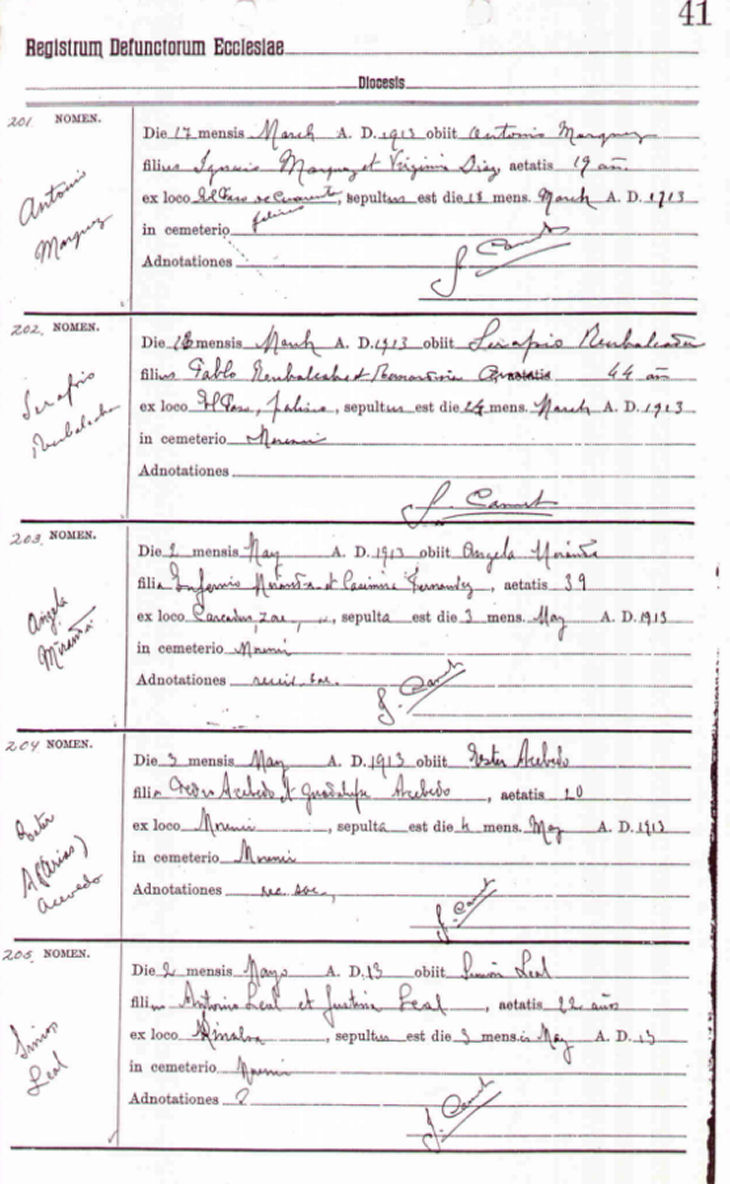 41
Registrum Defunctorum Ecclesiae
Diocesis
201. NOMEN.
Antonio
Marquez
Die 17 mensis March A. D. 1913 obiit Antonio Marquez
filius Ignacio Marquez et Virginia Diaz, aetatis 19 añ.
ex loco El Paso de, sepultus est die 18 mens. March A. D. 1913
in cemeterio
Adnotationes
202. NOMEN.
Serapio
Die 18 mensis March A. D. 1913 obiit Serapio
filius Pablo et aetatis 44 añ
ex loco El Paso, Jalisco, sepultus est die 24 mens. March A. D. 1913
in cemeterio Morenci
Adnotationes
203. NOMEN.
Angela
Miranda
Die 2 mensis May A. D. 1913 obiit Angela Miranda
filia Miranda et Casimira Fernandez, aetatis 39
ex loco Zac., sepulta est die 3 mens. May A. D. 1913
in cemeterio Morenci
Adnotationes
204 NOMEN.
Ester
(Arias)
Acevedo
Die 3 mensis May A. D. 1913 obiit Ester Acebedo
filia Acebedo et Guadalupe Acebedo, aetatis 20
ex loco Morenci, sepulta est die 4 mens. May A. D. 1913
in cemeterio Morenci
Adnotationes rec. sac.
205. NOMEN.
Simon
Leal
Die 2 mensis Mayo A. D. 13 obiit Simón Leal
filius Antonio Leal et Justina Leal, aetatis 22 años
ex loco Sinaloa, sepultus est die 3 mensis May A. D. 13
in cemeterio Morenci
Adnotationes ?